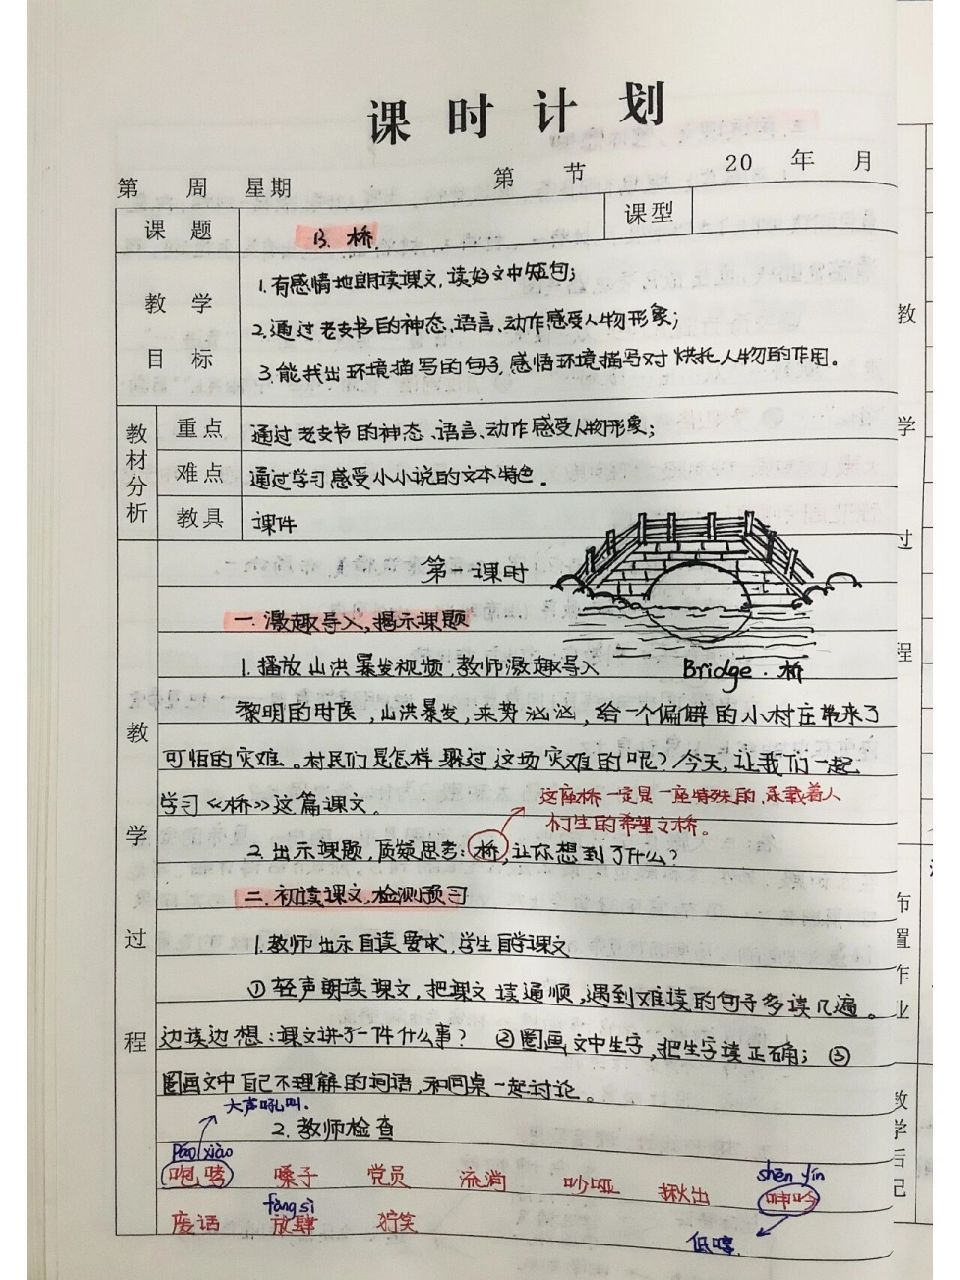 课时计划
第 周 星期 第 节 20 年 月
课题 13. 桥. 课型
教学目标
1.有感情地朗读课文,读好文中短句;
2.通过老支书的神态、语言、动作感受人物形象;
3.能找出环境描写的句子,感悟环境描写对烘托人物的作用。
教材分析
重点 通过老支书的神态、语言、动作感受人物形象;
难点 通过学习感受小小说的文本特色。
教具 课件
教学过程
第一课时
一.激趣导入,揭示课题
1.播放山洪暴发视频,教师激趣导入
Bridge.桥
黎明的时候,山洪暴发,来势汹汹,给一个偏僻的小村庄带来了
可怕的灾难。村民们是怎样躲过这场灾难的呢?今天,让我们一起
学习《桥》这篇课文。
这座桥一定是一座特殊的,承载着人
们生的希望之桥。
2.出示课题,质疑思考:桥,让你想到了什么?
二.初读课文,检测预习
1.教师出示自读要求,学生自学课文
①轻声朗读课文,把课文读通顺,遇到难读的句子多读几遍。
边读边想:课文讲了一件什么事? ②圈画文中生字,把生字读正确; ③
圈画文中自己不理解的词语,和同桌一起讨论。
大声吼叫.
2.教师检查
páo xiào shēn yín
咆哮 嗓子 党员 流淌 沙哑 揪出 呻吟
fàng sì
废话 放肆 狞笑
低哼.
教
学
过
程
布
置
作
业
教
学
后
记